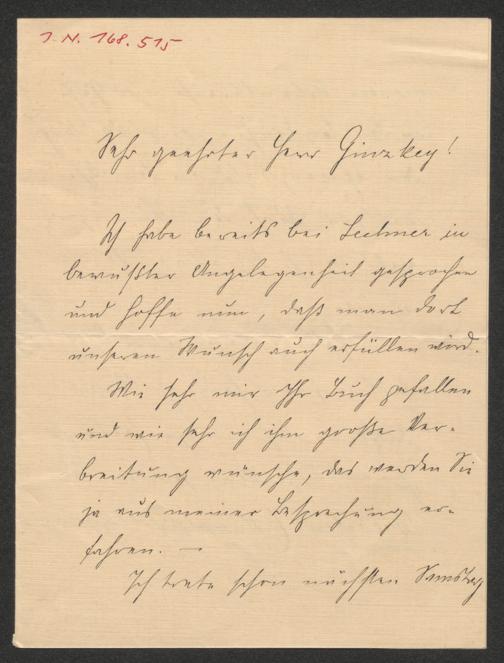 I. N. 168.515
Sehr geehrter Herr Ginzkey!
Ich habe bereits bei Lechner in
bewußter Angelegenheit gesprochen
und hoffe nun, daß man dort
unseren Wunsch auch erfüllen wird.
Wie sehr mir Ihr Buch gefallen
und wie sehr ich ihm große Ver-
breitung wünsche, das werden Sie
ja aus meiner Besprechung er-
fahren. —
Ich trete schon nächsten Samstag